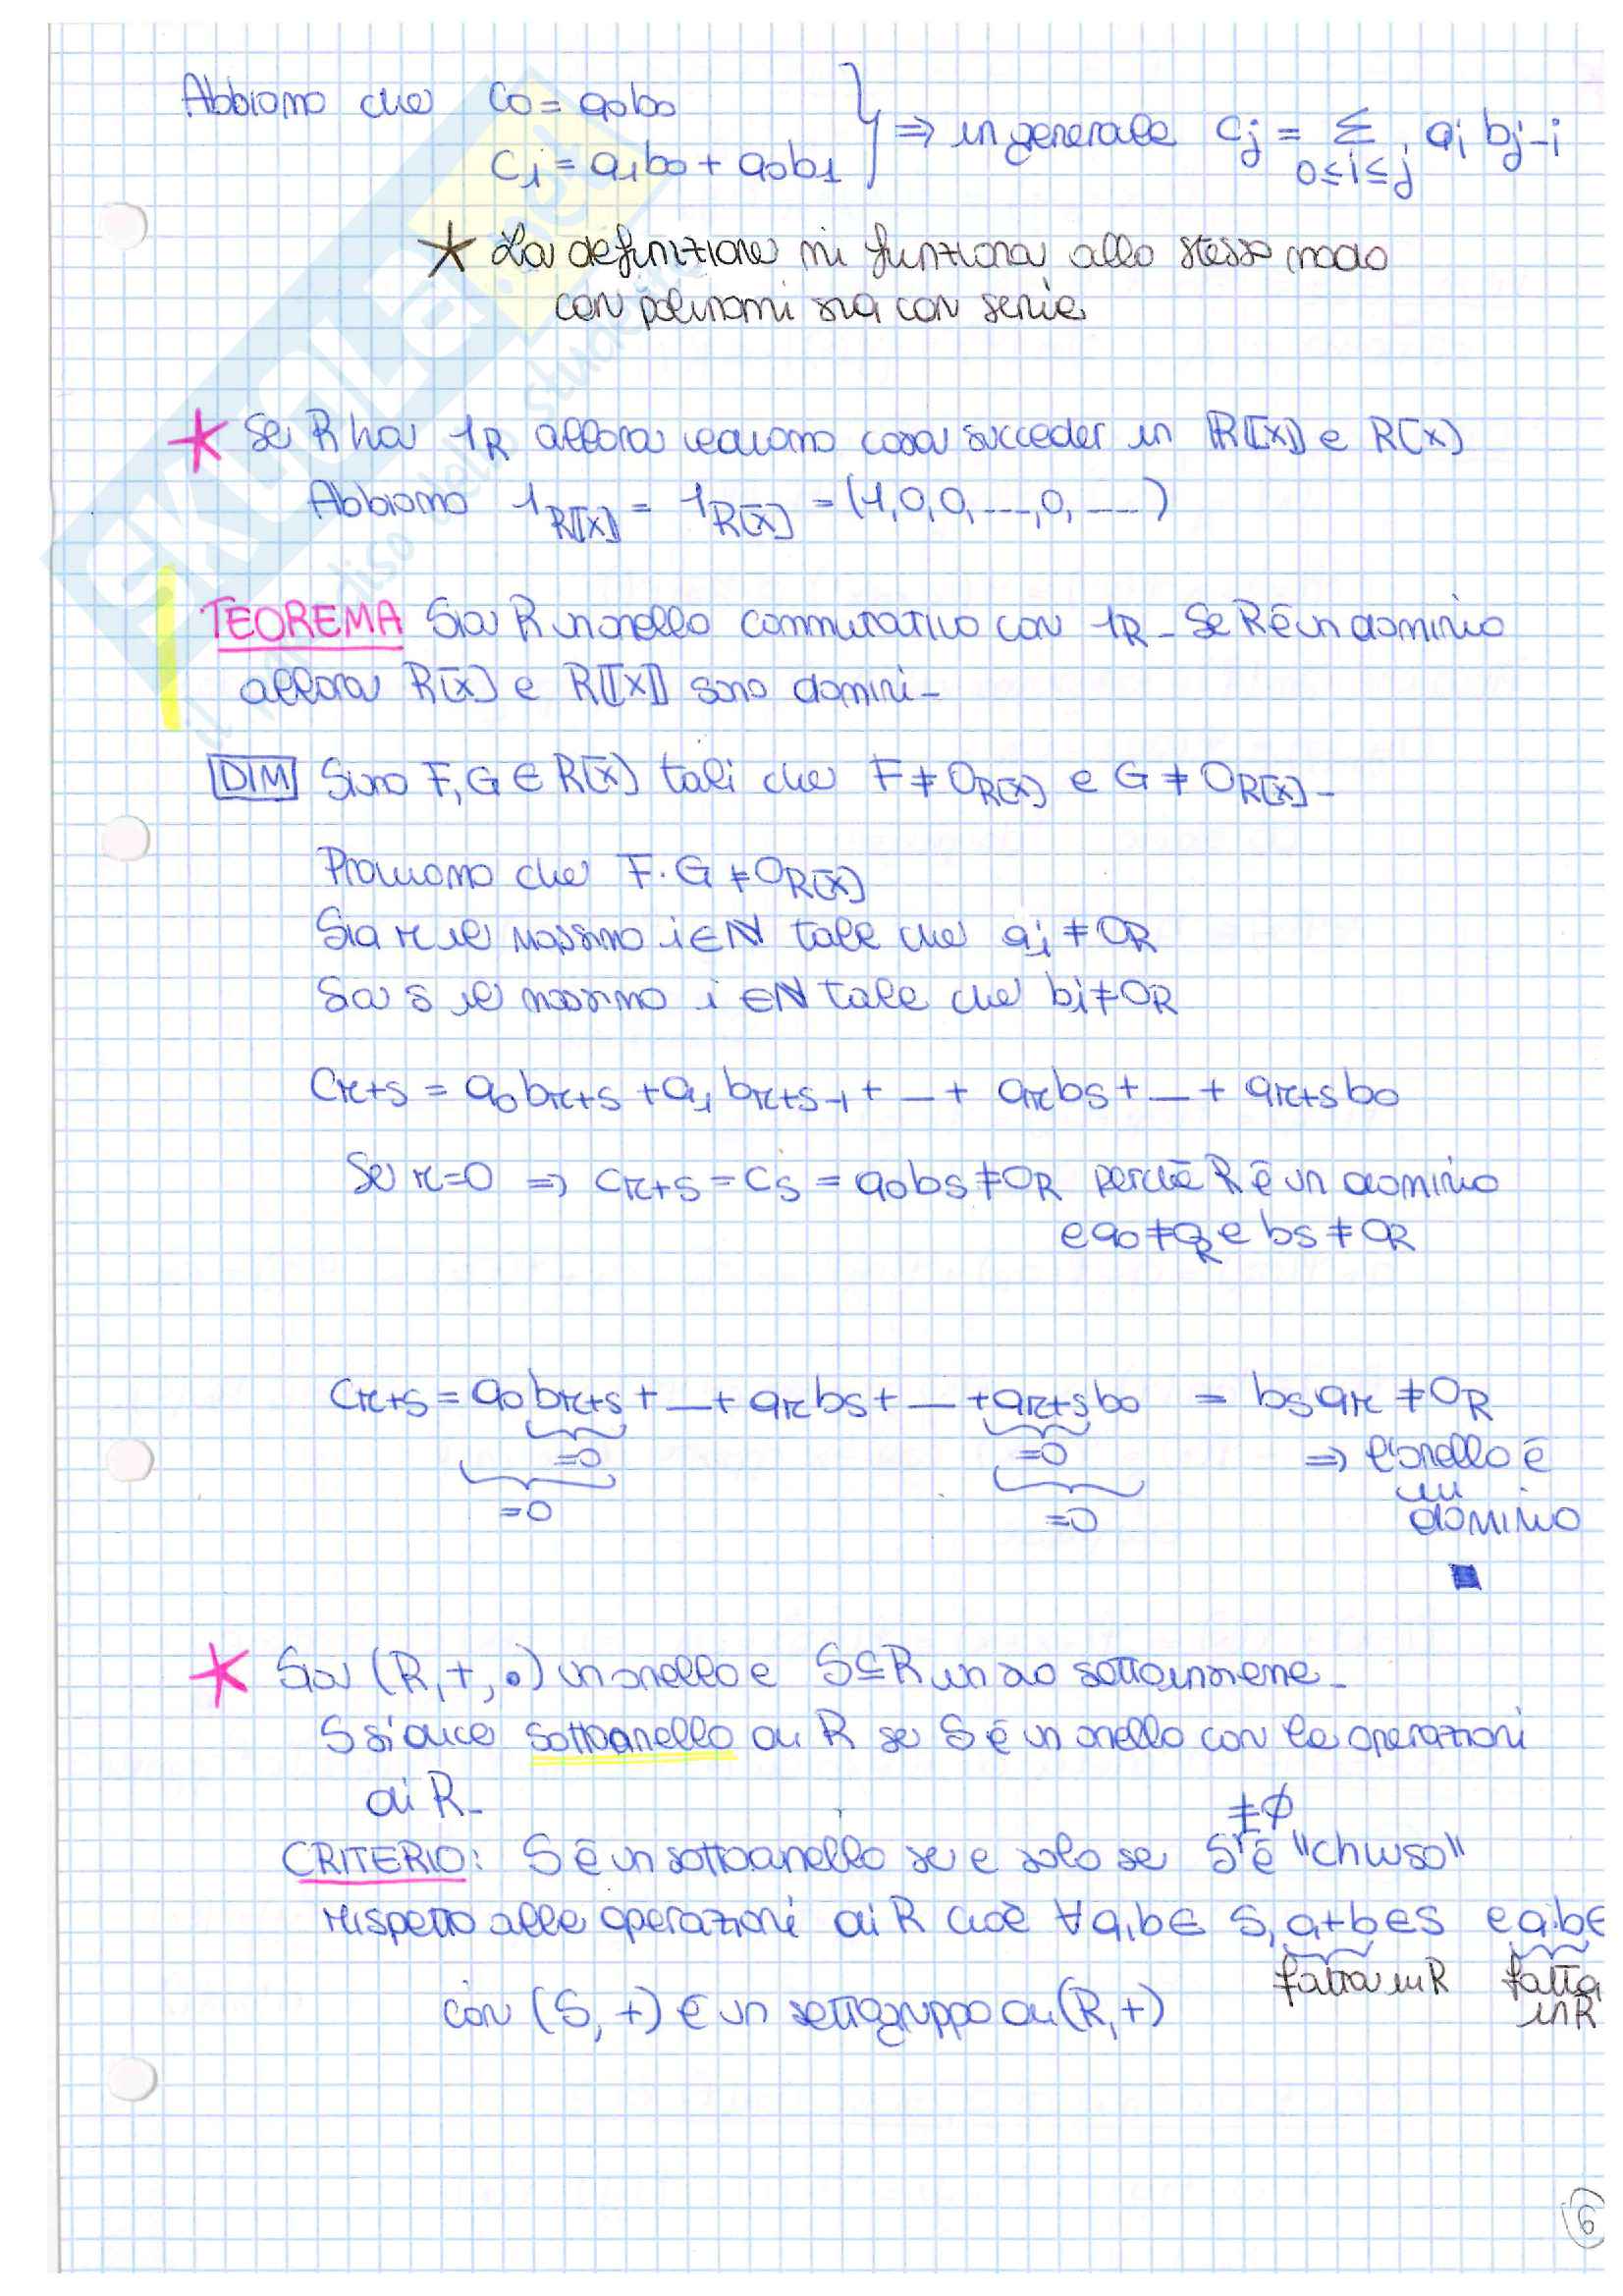 Abbiamo che c₀ = a₀b₀
c₁ = a₁b₀ + a₀b₁ } ⇒ in generale cⱼ = Σ 0≤i≤j aᵢ bⱼ₋ᵢ
* La definizione mi funziona allo stesso modo
con polinomi sia con serie.
* Se R ha 1_R allora vediamo cosa succede in R[[x]] e R[x]
Abbiamo 1_R[[x]] = 1_R[x] = (1,0,0,...,0,...)
TEOREMA Sia R un anello commutativo con 1_R - Se R è un dominio
allora R[x] e R[[x]] sono domini -
DIM Siano F, G ∈ R[x] tali che F ≠ 0_R[x] e G ≠ 0_R[x] -
Proviamo che F·G ≠ 0_R[x]
Sia r il massimo i∈ℕ tale che aᵢ ≠ 0_R
Sia s il massimo i ∈ℕ tale che bᵢ ≠ 0_R
c_r+s = a₀b_r+s + a₁b_r+s-1 + ... + a_r b_s + ... + a_r+s b₀
Se r=0 ⇒ c_r+s = c_s = a₀b_s ≠ 0_R perché R è un dominio
e a₀ ≠ 0_R e b_s ≠ 0_R
c_r+s = a₀b_r+s + ... + a_r b_s + ... + a_r+s b₀ = b_s a_r ≠ 0_R
=0 =0 ⇒ l'anello è
un
=0 =0 dominio
* Sia (R,+,·) un anello e S⊆R un suo sottoinsieme -
S si dice sottoanello di R se S è un anello con le operazioni
di R -
≠∅
CRITERIO: S è un sottoanello se e solo se S è "chiuso"
rispetto alle operazioni di R cioè ∀a,b∈ S, a+b∈S e a·b∈
fatta in R fatta
in R
con (S, +) è un sottogruppo di (R,+)
6
SKUOLA.net